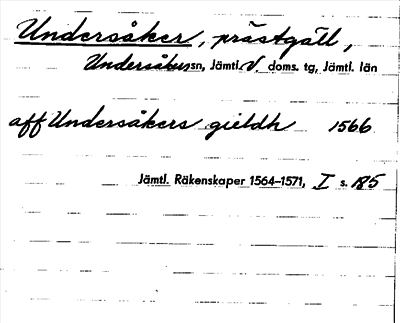 Undersåker, prästgäll,
Undersåkers sn, Jämtl. V. doms. tg, Jämtl. län
aff Undersåkers gieldh 1566
Jämtl. Räkenskaper 1564-1571, I s. 185